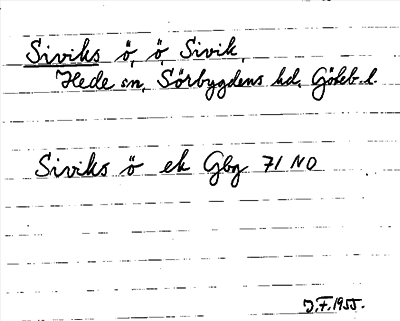 Siviks ö, ö, Sivik,
Hede sn, Sörbygdens hd, Göteb. l.
Siviks ö ek Gbg 71 NO
J.F. 1955.